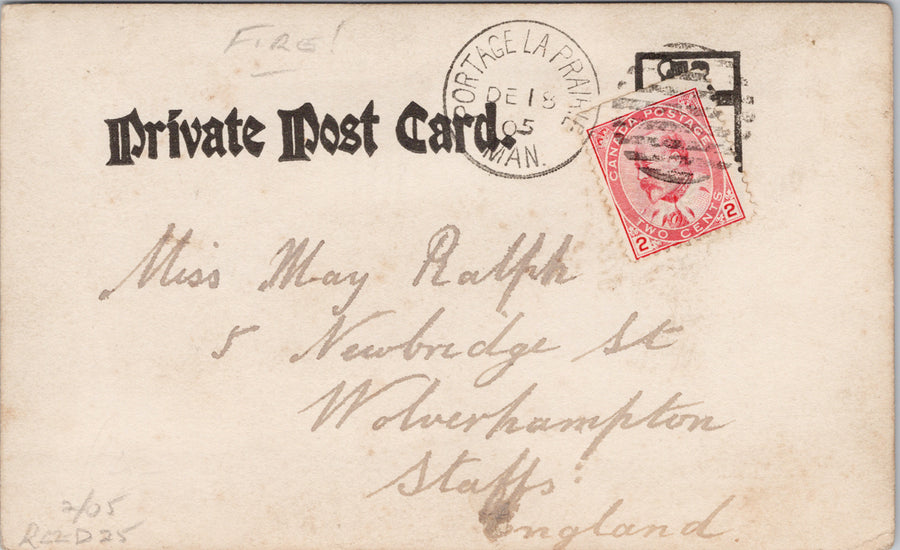 FIRE!
PORTAGE LA PRAIRIE
DE 18
05
MAN.
Private Post Card.
CANADA POSTAGE
2 TWO CENTS 2
Miss May Ralph
5 Newbridge St
Wolverhampton
Staffs:
England.
2/05